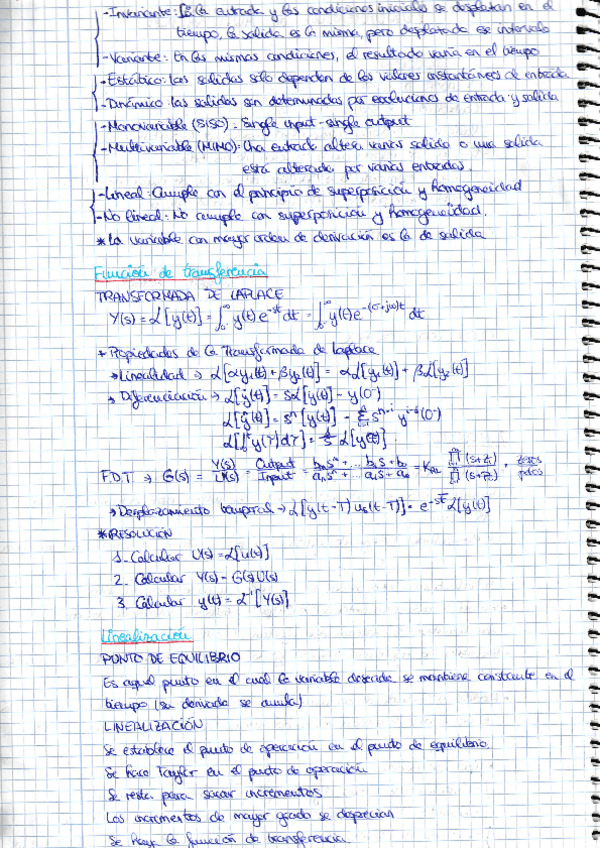 -Invariante: Si la entrada y las condiciones iniciales se desplazan en el
tiempo, la salida es la misma, pero desplazada ese intervalo
-Variante: En las mismas condiciones, el resultado varía en el tiempo
-Estático: las salidas sólo dependen de los valores instantáneos de entrada
-Dinámico: las salidas son determinadas por evoluciones de entrada y salida
-Monovariable (SISO): Single input-single output
-Multivariable (MIMO): Una entrada altera varias salida o una salida
está alterada por varias entradas.
-Lineal: Cumple con el principio de superposición y homogeneidad
-No lineal: No cumple con superposición y homogeneidad.
*La variable con mayor orden de derivación es la de salida
Función de transferencia
TRANSFORMADA DE LAPLACE
Y(s) = ℒ[y(t)] = ∫₀^∞ y(t) e^(-st) dt = ∫₀^∞ y(t) e^(-(σ+jω)t) dt
+ Propiedades de la Transformada de Laplace
→ Linealidad → ℒ[αy₁(t) + βy₂(t)] = αℒ[y₁(t)] + βℒ[y₂(t)]
→ Diferenciación → ℒ[ẏ(t)] = sℒ[y(t)] - y(0⁻)
ℒ[ẏ(t)] = sⁿ[y(t)] - Σ sⁿ⁻ⁱ yⁱ⁻¹(0⁻)
ℒ[∫₀ᵗ y(τ)dτ] = 1/s ℒ[y(t)]
F.D.T → G(s) = Y(s)/U(s) = Output/Input = bₙsⁿ+... b₁s+b₀ / aₙsⁿ+... a₁s+a₀ = ∏(s+zᵢ) / ∏(s+pᵢ) ceros polos
→ Desplazamiento temporal → ℒ[y(t-T) uₛ(t-T)] = e^(-sT) ℒ[y(t)]
*RESOLUCIÓN
1. Calcular U(s) = ℒ[u(t)]
2. Calcular Y(s) = G(s)U(s)
3. Calcular y(t) = ℒ⁻¹[Y(s)]
Linealización
PUNTO DE EQUILIBRIO
Es aquel punto en el cual la variable deseada se mantiene constante en el
tiempo (su derivada se anula)
LINEALIZACIÓN
Se establece el punto de operación en el punto de equilibrio.
Se hace Taylor en el punto de operación
Se resta para sacar incrementos
Los incrementos de mayor grado se desprecian
Se haya la función de transferencia.